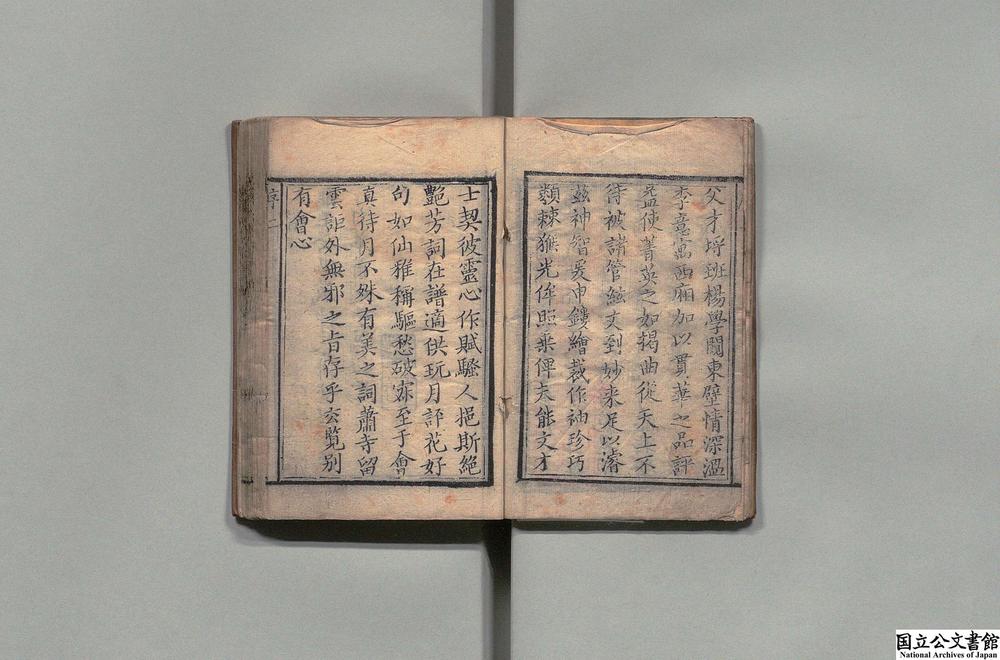 父才埒班楊學闚東壁情深溫
李意寓西廂加以貫華之品評
益使菁英之如揭曲從天上不
待被諸管絃文到妙来足以濬
茲神智爰申鏤繪裁作袖珍巧
類棘猴光侔照乗俾夫能文才
士契彼靈心作賦騷人挹斯絕
艷芳詞在譜適供玩月評花好
句如仙雅稱驅愁破寂至于會
真待月不殊有美之詞蕭寺留
雲詎外無邪之旨存乎玄覧別
有會心
序二
国立公文書館
National Archives of Japan